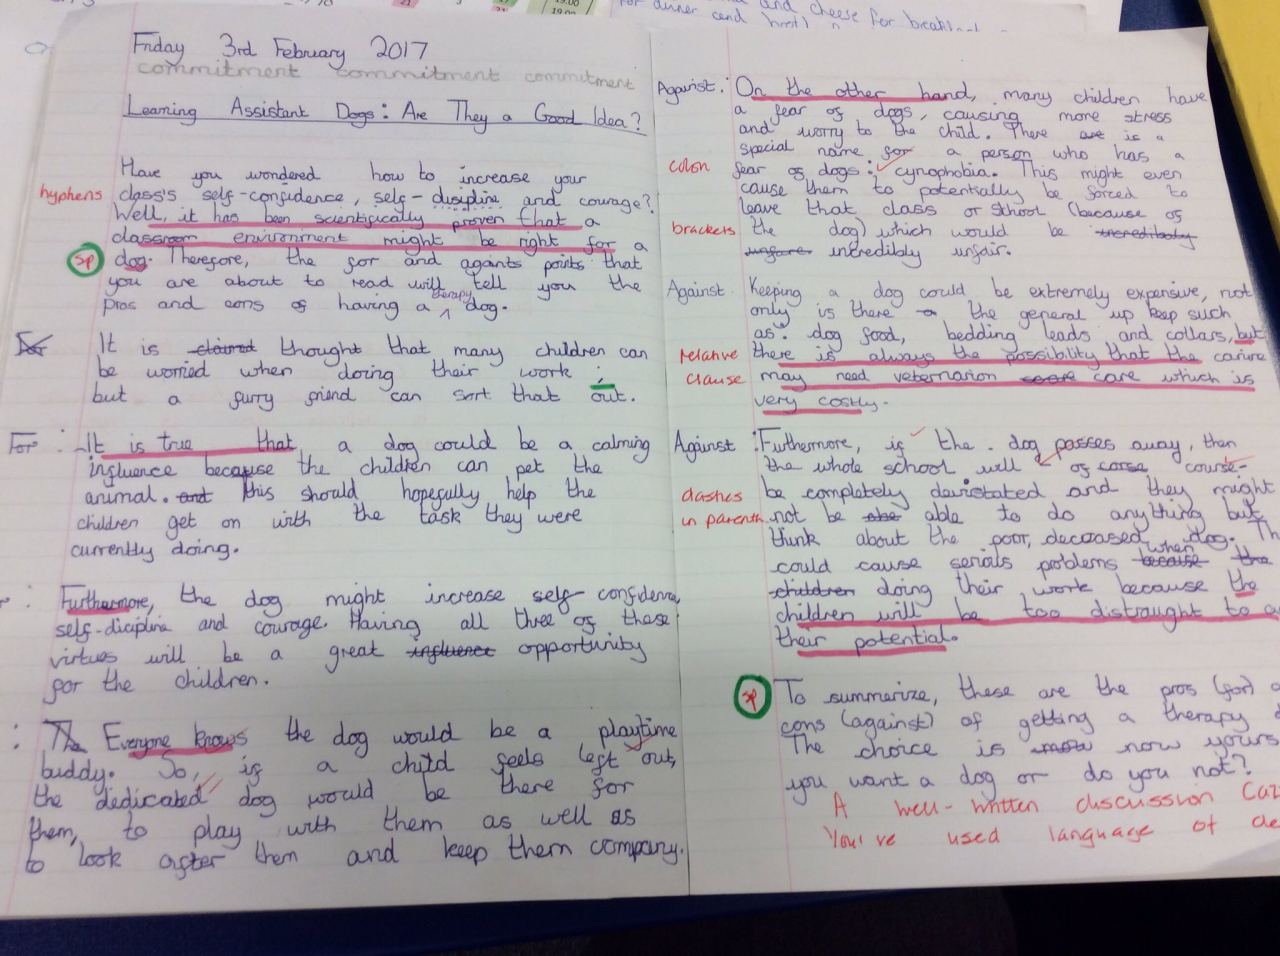 for dinner and and cheese for
Friday 3rd February 2017
commitment commitment commitment
Learning Assistant Dogs: Are They a Good Idea?
Have you wondered how to increase your
hyphens class's self-confidence, self-discipline and courage?
Well, it has been scientifically proven that a
classroom environment might be right for a
sp dog. Therefore, the for and agants points that
you are about to read will tell you the
pros and cons of having a therapy dog.
For It is claimed thought that many children can
be worried when doing their work ;
but a furry friend can sort that out.
For : It is true that a dog could be a calming
influence because the children can pet the
animal. and this should hopefully help the
children get on with the task they were
currently doing.
: Furthermore, the dog might increase self confidence,
self-dicipline and courage. Having all three of these
virtues will be a great influence opportunity
for the children.
: The Everyone knows the dog would be a playtime
buddy. So, if a child feels left out,
the dedicated dog would be there for
them, to play with them as well as
to look after them and keep them company.
Against: On the other hand, many children have
a fear of dogs, causing more stress
and worry to the child. There are is a
special name for a person who has a
colon fear of dogs: cynophobia. This might even
cause them to potentially be forced to
leave that class or school (because of
brackets the dog) which would be increadibaly
unfare incredibly unfair.
Against Keeping a dog could be extremely expensive, not
only is there a the general up keep such
as: dog food, bedding leads and collars, but
relative there is always the possibility that the canine
clause may need veternarion care which is
very costly.
Against : Furthermore, if the dog passes away, then
the whole school will of corse course-
dashes be completely devistated and they might
in parenth. not be able to do anything but
think about the poor, deceased dog.
could cause serious problems because when the
children doing their work because the
children will be too distraught to
their potential.
sp To summerize, these are the pros (for)
cons (against) of getting a therapy
The choice is now yours
you want a dog or do you not?
A well-written discussion
You've used language of